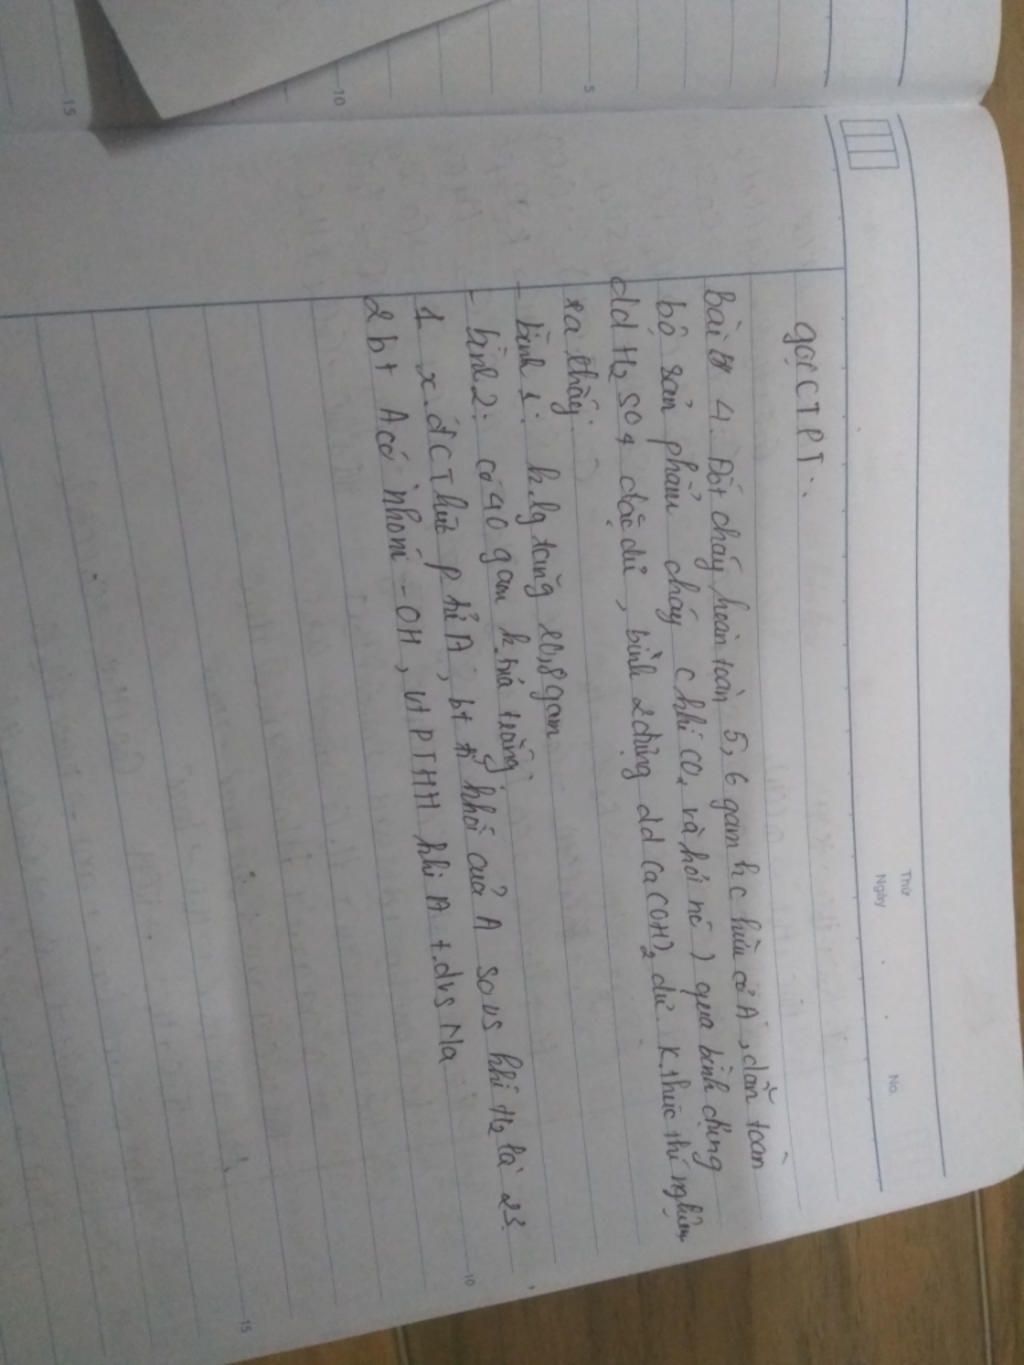 Thứ
Ngày
No.
gọi CTPT:
Bài 4: Đốt cháy hoàn toàn 5,6 gam h c hữu cơ A, dẫn toàn
bộ sản phẩm cháy ( khí CO2 và hơi nc ) qua bình đựng
dd H2SO4 đặc dư, bình 2 đựng dd Ca(OH)2 dư. K.thúc thí nghiệm
ta thấy:
- bình 1: k.lg tăng 10,8 gam
- bình 2: có 40 gam k.tủa trắng
1 x.đ CThức p.tử A, bt tỉ khối của A so vs khí H2 là 23.
2 bt A có nhóm -OH, vt PTHH khi A t.d vs Na
5
10
15
10
15